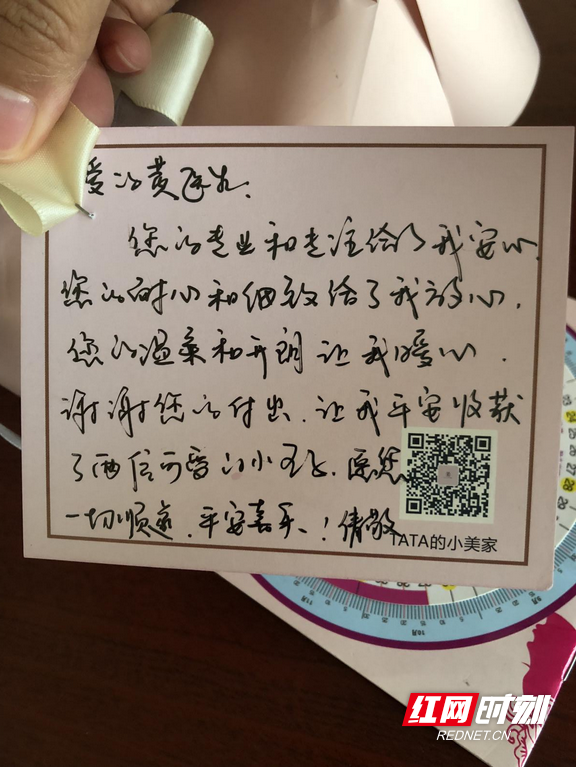 爱的黄医生.
您的专业和专注给了我安心.
您的耐心和细致给了我放心.
您的温柔和开朗让我暖心.
谢谢您的付出.让我平安收获
了两倍可爱的小
一切顺遂.平安喜乐!倩敬
TATA的小美家
10月
红网时刻
REDNET.CN